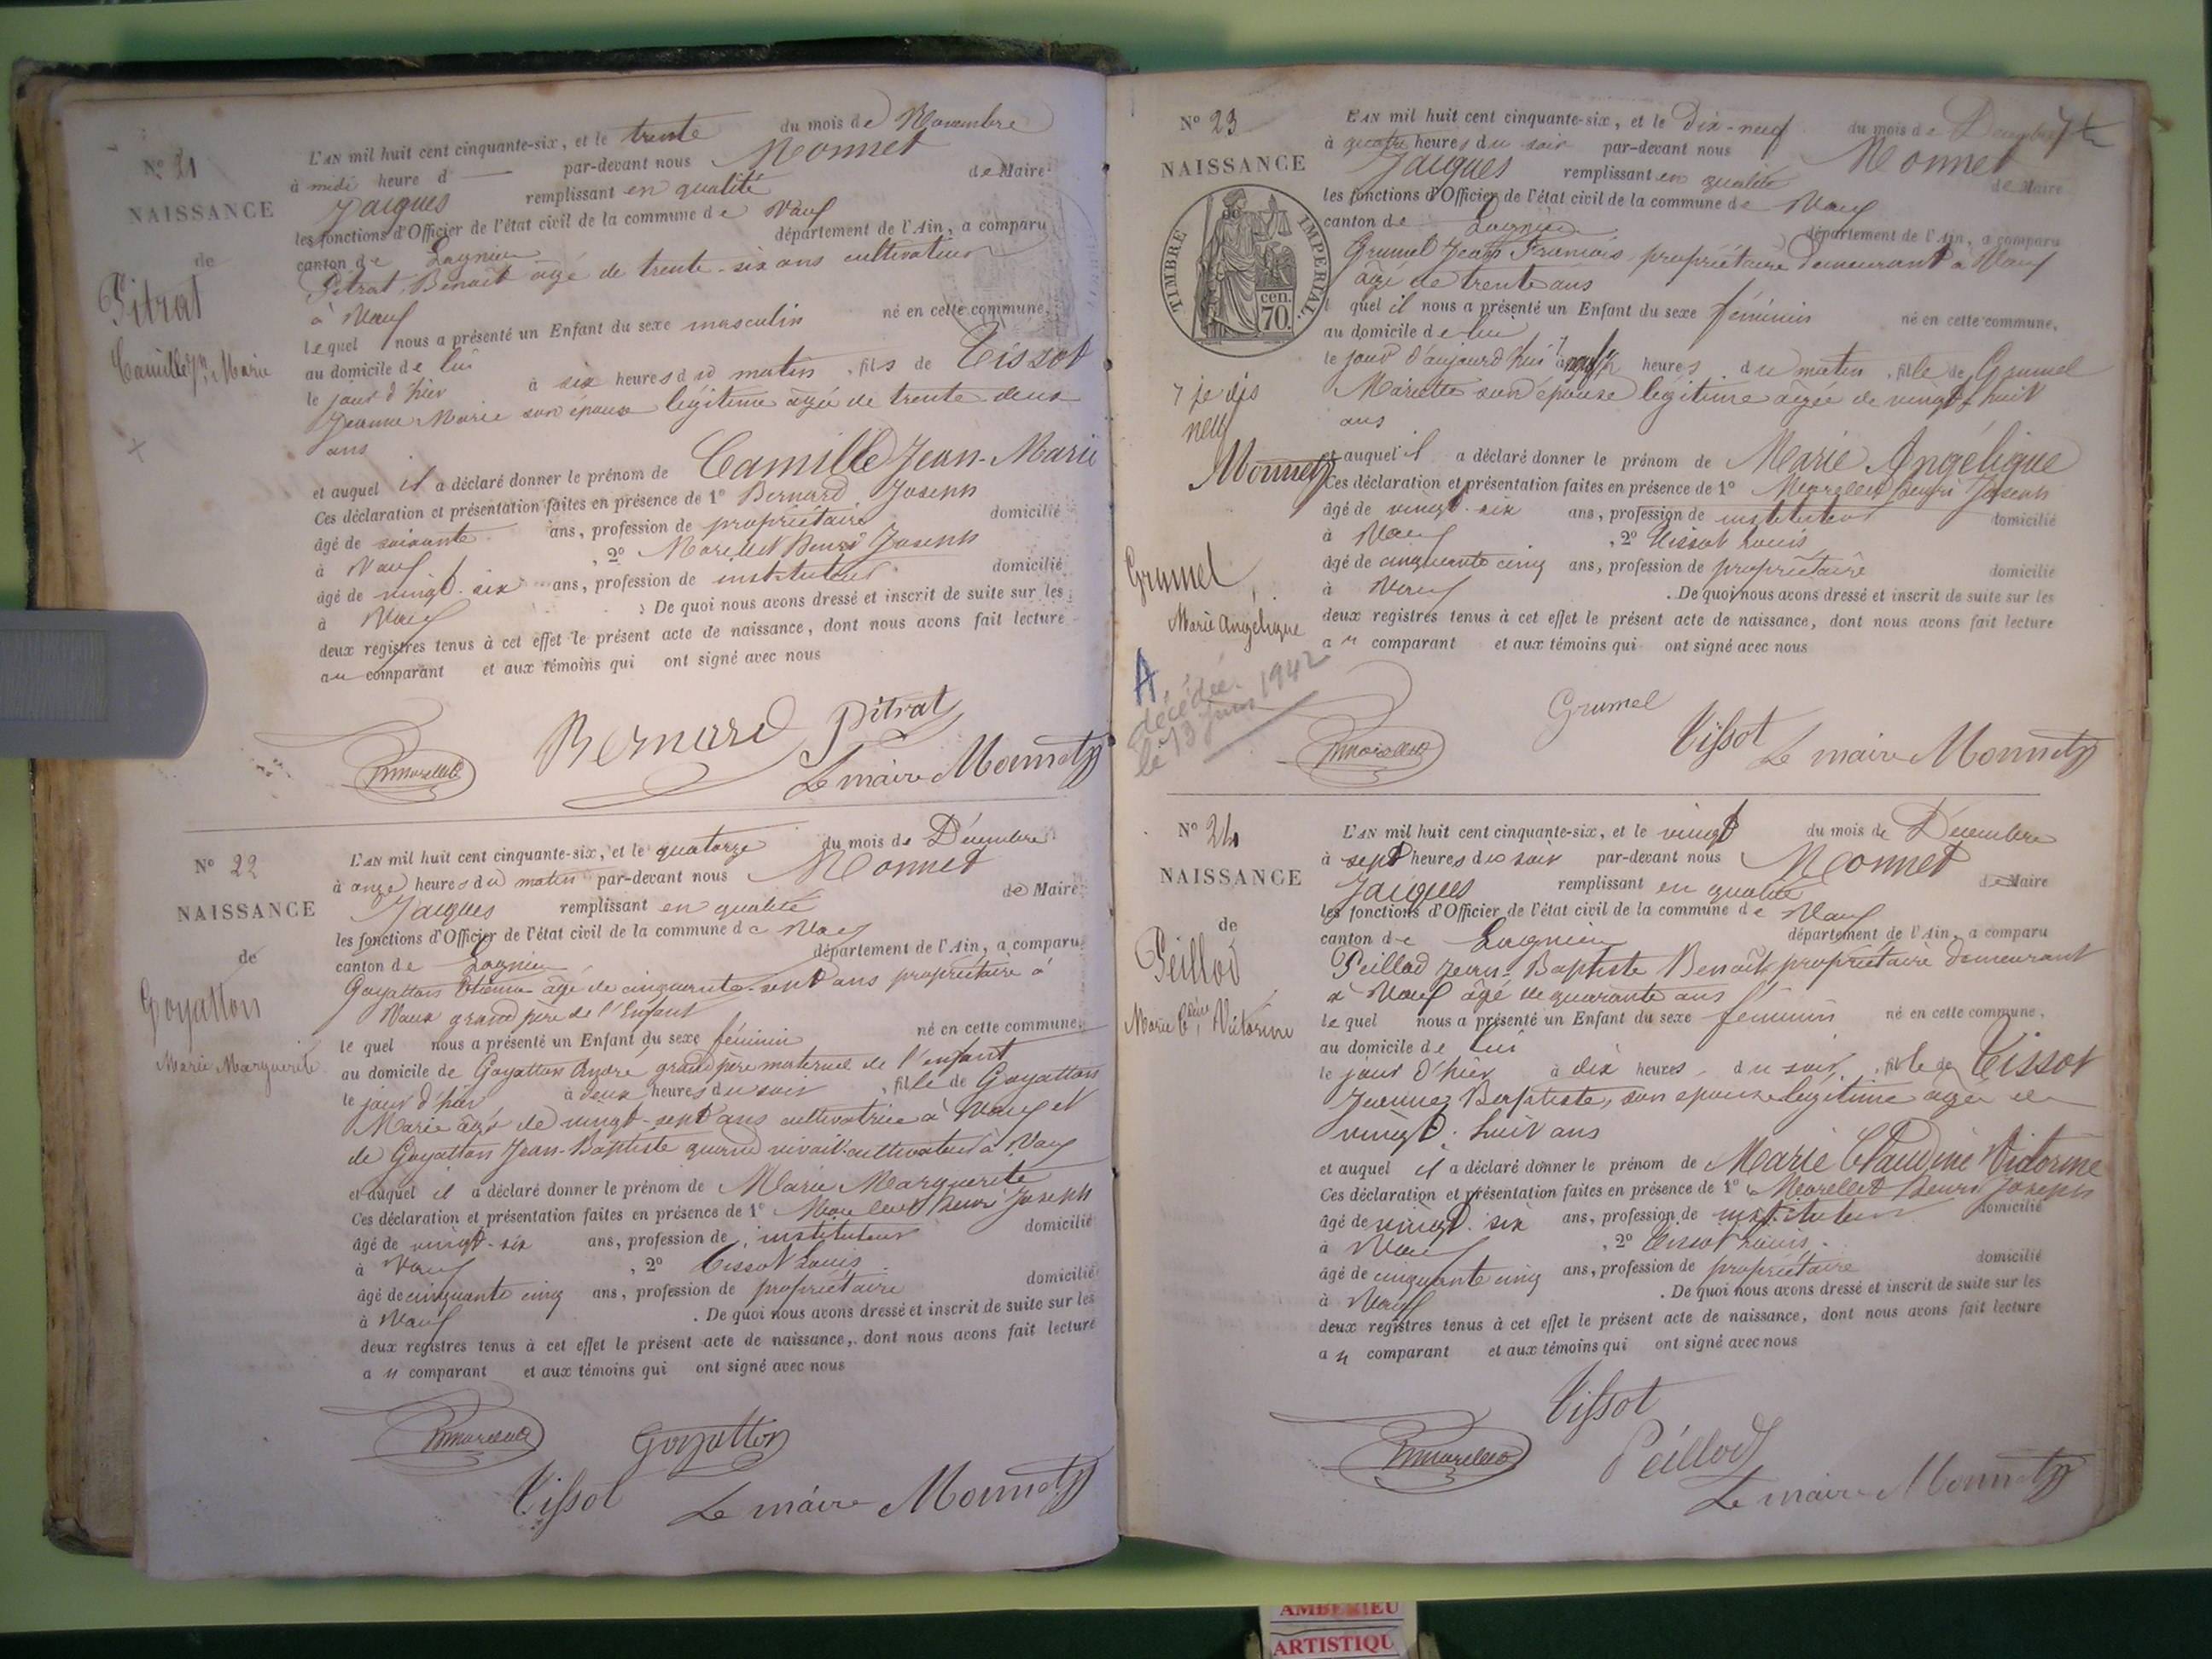 N° 21
NAISSANCE
de
Pitrat
Camille Jn Marie
L'AN mil huit cent cinquante-six, et le trente du mois de Novembre
à midi heure d — par-devant nous Monnet
Jacques remplissant en qualité de Maire
les fonctions d'Officier de l'état civil de la commune de Vaux
canton de Lagnieu département de l'Ain, a comparu
Pitrat Benoît âgé de trente-six ans cultivateur
à Vaux
lequel nous a présenté un Enfant du sexe masculin né en cette commune,
au domicile de lui
le jour d'hier à six heures du matin, fils de Tissot
Jeanne Marie son épouse légitime âgée de trente deux
ans
et auquel il a déclaré donner le prénom de Camille Jean-Marie
Ces déclaration et présentation faites en présence de 1° Bernard Joseph
âgé de soixante ans, profession de propriétaire domicilié
à Vaux, 2° Morellet Henri Joseph
âgé de vingt-six ans, profession de instituteur domicilié
à Vaux. De quoi nous avons dressé et inscrit de suite sur les
deux registres tenus à cet effet le présent acte de naissance, dont nous avons fait lecture
au comparant et aux témoins qui ont signé avec nous
Bernard Pitrat
Morellet
Le maire Monnet
N° 22
NAISSANCE
de
Goyatton
Marie Marguerite
L'AN mil huit cent cinquante-six, et le quatorze du mois de Décembre
à onze heures du matin par-devant nous Monnet
Jacques remplissant en qualité de Maire
les fonctions d'Officier de l'état civil de la commune de Vaux
canton de Lagnieu département de l'Ain, a comparu
Goyatton Etienne âgé de cinquante-sept ans propriétaire à
Vaux grand père de l'Enfant
lequel nous a présenté un Enfant du sexe féminin né en cette commune,
au domicile de Goyatton André grand père maternel de l'enfant
le jour d'hier à deux heures du soir, fille de Goyatton
Marie âgé de vingt-sept ans cultivatrice à Vaux et
de Goyatton Jean-Baptiste quand vivait cultivateur à Vaux
et auquel il a déclaré donner le prénom de Marie Marguerite
Ces déclaration et présentation faites en présence de 1° Morellet Henri Joseph
âgé de vingt-six ans, profession de instituteur domicilié
à Vaux, 2° Tissot Louis
âgé de cinquante cinq ans, profession de propriétaire domicilié
à Vaux. De quoi nous avons dressé et inscrit de suite sur les
deux registres tenus à cet effet le présent acte de naissance, dont nous avons fait lecture
au comparant et aux témoins qui ont signé avec nous
Morellet Goyatton
Tissot Le maire Monnet
N° 23
NAISSANCE
de
TIMBRE IMPERIAL
cen. 70.
7 je dis
neuf
Monnet
Grumel
Marie Angélique
A
décédée
le 13 juin 1942
L'AN mil huit cent cinquante-six, et le dix-neuf du mois de Décembre
à quatre heures du soir par-devant nous Monnet
Jacques remplissant en qualité de Maire
les fonctions d'Officier de l'état civil de la commune de Vaux
canton de Lagnieu département de l'Ain, a comparu
Grumel Jean François propriétaire demeurant à Vaux
âgé de trente ans
lequel il nous a présenté un Enfant du sexe féminin né en cette commune,
au domicile de lui
le jour d'aujourd'hui à heures du matin, fille de Grumel
Mariette son épouse légitime âgée de vingt-huit
ans
et auquel il a déclaré donner le prénom de Marie Angélique
Ces déclaration et présentation faites en présence de 1° Morellet Henri Joseph
âgé de vingt-six ans, profession de instituteur domicilié
à Vaux, 2° Tissot Louis
âgé de cinquante cinq ans, profession de propriétaire domicilié
à Vaux. De quoi nous avons dressé et inscrit de suite sur les
deux registres tenus à cet effet le présent acte de naissance, dont nous avons fait lecture
au comparant et aux témoins qui ont signé avec nous
Grumel
Morellet Tissot Le maire Monnet
N° 24
NAISSANCE
de
Peillod
Marie Cdine Victorine
L'AN mil huit cent cinquante-six, et le vingt du mois de Décembre
à sept heures du soir par-devant nous Monnet
Jacques remplissant en qualité de Maire
les fonctions d'Officier de l'état civil de la commune de Vaux
canton de Lagnieu département de l'Ain, a comparu
Peillod Jean-Baptiste Benoît propriétaire demeurant
à Vaux âgé de quarante ans
lequel nous a présenté un Enfant du sexe féminin né en cette commune,
au domicile de lui
le jour d'hier à dix heures du soir, fille de Tissot
Jeanne Baptiste, son épouse légitime âgée de
vingt-huit ans
et auquel il a déclaré donner le prénom de Marie Claudine Victorine
Ces déclaration et présentation faites en présence de 1° Morellet Henri Joseph
âgé de vingt-six ans, profession de instituteur domicilié
à Vaux, 2° Tissot Louis
âgé de cinquante cinq ans, profession de propriétaire domicilié
à Vaux. De quoi nous avons dressé et inscrit de suite sur les
deux registres tenus à cet effet le présent acte de naissance, dont nous avons fait lecture
au comparant et aux témoins qui ont signé avec nous
Tissot
Morellet Peillod
Le maire Monnet
AMBERIEU
ARTISTIQU